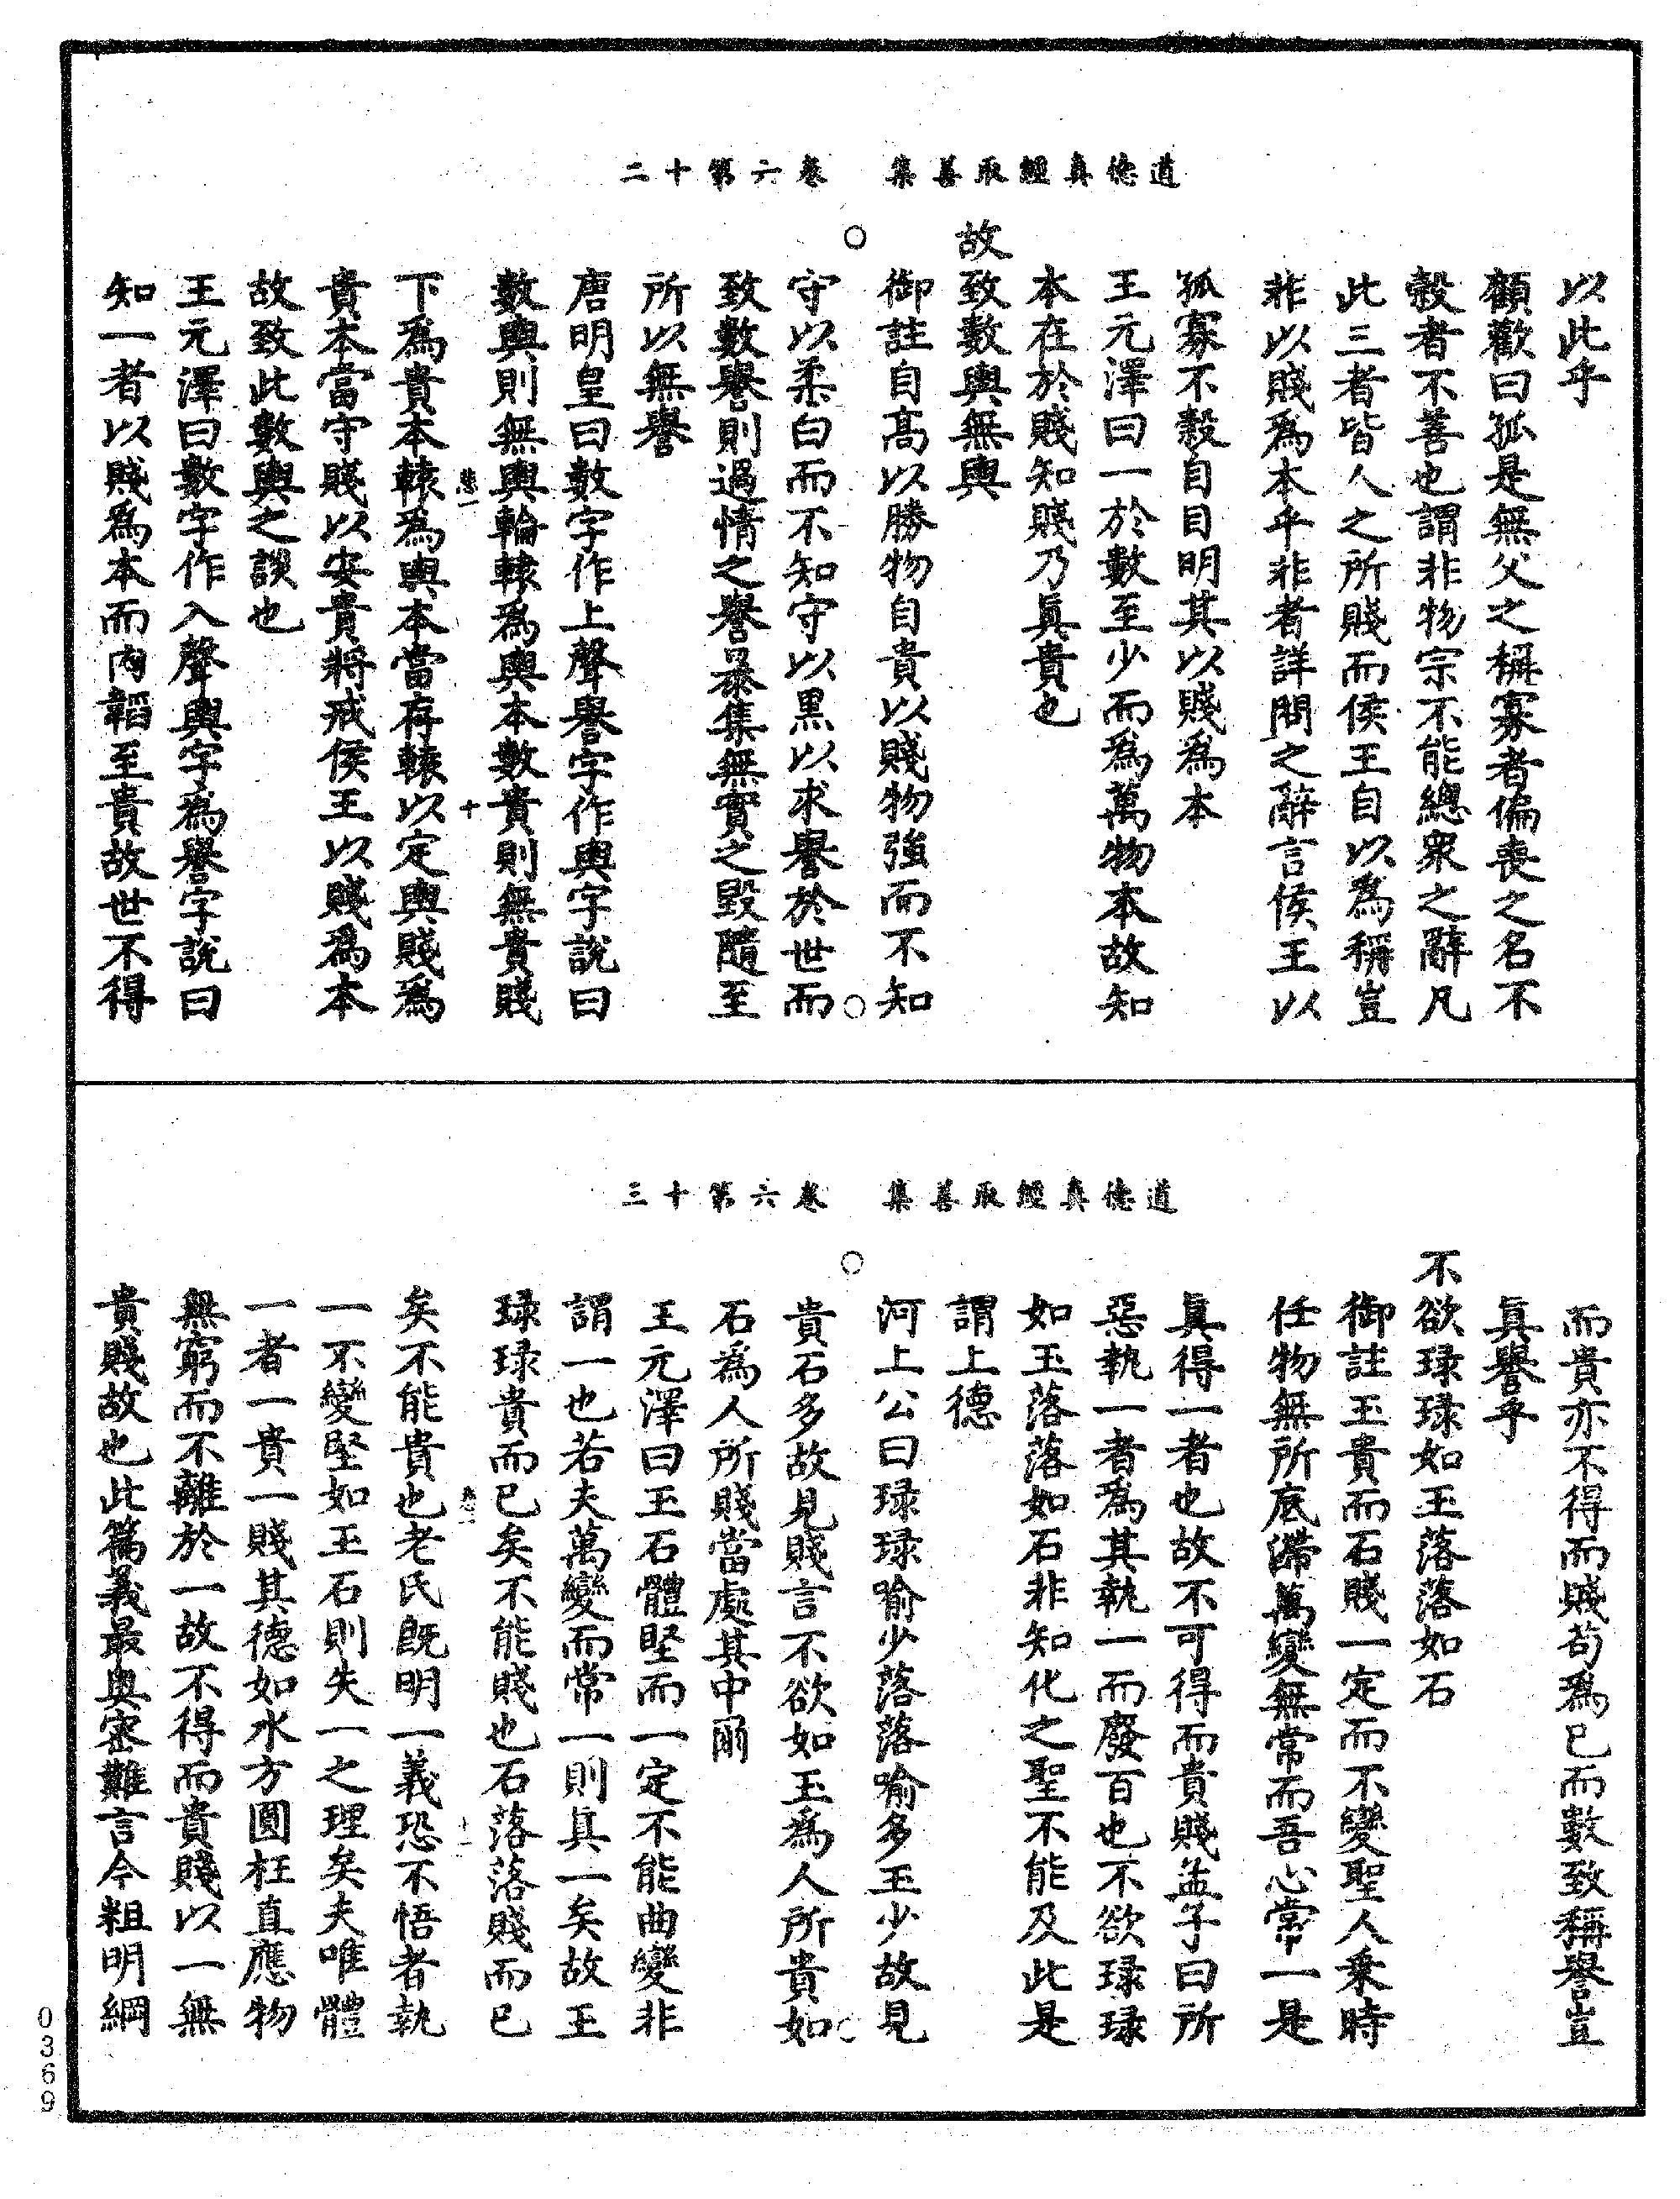 道德真經取善集　卷六第十二
以此乎
顧歡曰孤是無父之稱寡者偏喪之名不
穀者不善也謂非物宗不能總衆之辭凡
此三者皆人之所賤而侯王自以為稱豈
非以賤為本乎非者詳問之辭言侯王以
孤寡不穀自目明其以賤為本
王元澤曰一於數至少而為萬物本故知
本在於賤知賤乃真貴也
故致數輿無輿
御註自高以勝物自貴以賤物強而不知
守以柔白而不知守以黑以求譽於世而
致數譽則過情之譽暴集無實之毀隨至
所以無譽
唐明皇曰數字作上聲譽字作輿字說曰
數輿則無輿輪轅為輿本數貴則無貴賤
下為貴本轅為輿本當存轅以定輿賤為
貴本當守賤以安貴將戒侯王以賤為本
故致此數輿之談也
王元澤曰數字作入聲輿字為譽字說曰
知一者以賤為本而內韜至貴故世不得
道德真經取善集　卷六第十三
而貴亦不得而賤苟為已而數致稱譽豈
真譽乎
不欲琭琭如玉落落如石
御註玉貴而石賤一定而不變聖人乘時
任物無所底滯萬變無常而吾心常一是
真得一者也故不可得而貴賤孟子曰所
惡執一者為其執一而廢百也不欲琭琭
如玉落落如石非知化之聖不能及此是
謂上德
河上公曰琭琭喻少落落喻多玉少故見
貴石多故見賤言不欲如玉為人所貴如
石為人所賤當處其中爾
王元澤曰玉石體堅而一定不能曲變非
謂一也若夫萬變而常一則真一矣故玉
琭琭貴而已矣不能賤也石落落賤而已
矣不能貴也老氏既明一義恐不悟者執
一不變堅如玉石則失一之理矣夫唯體
一者一貴一賤其德如水方圓枉直應物
無窮而不離於一故不得而貴賤以一無
貴賤故也此篇義最奥密難言今粗明綱
0369